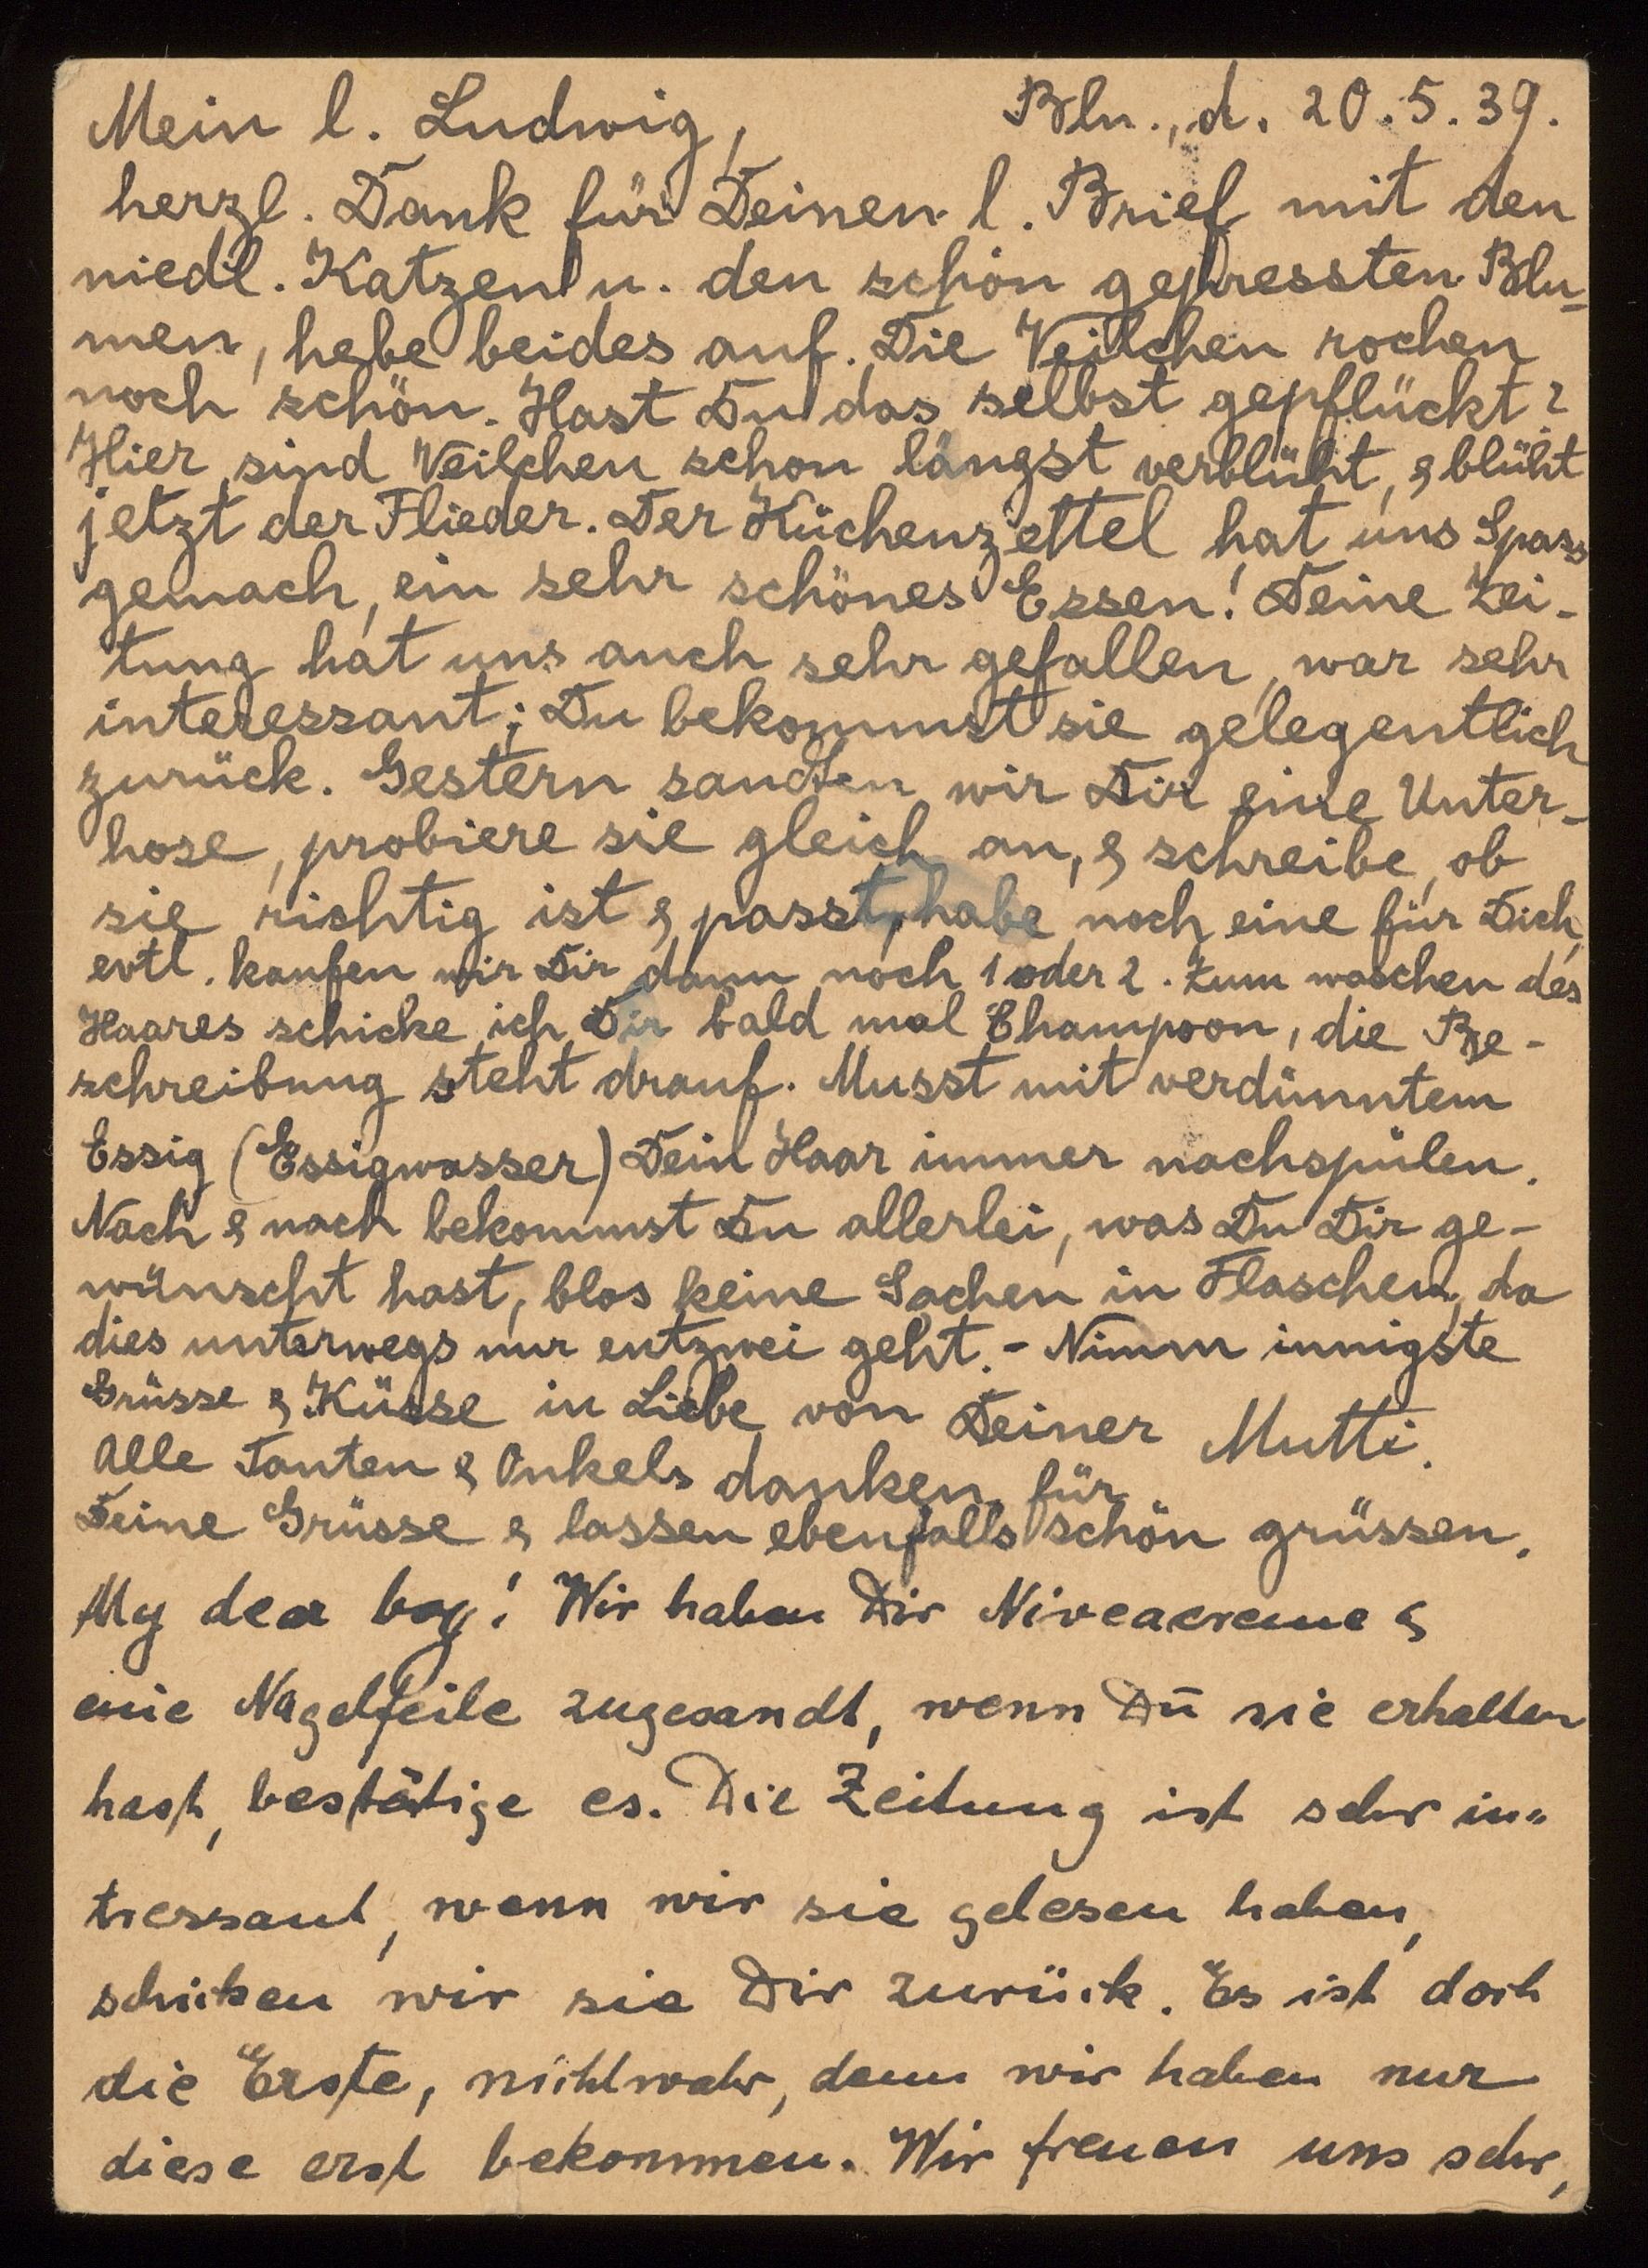 Bln., d. 20.5.39.
Mein l. Ludwig,
herzl. Dank für Deinen l. Brief mit den
niedl. Katzen u. den schön gepressten Blu-
men, hebe beides auf. Die Veilchen rochen
noch schön. Hast Du das selbst gepflückt?
Hier sind Veilchen schon längst verblüht, & blüht
jetzt der Flieder. Der Küchenzettel hat uns Spass
gemach, ein sehr schönes Essen! Deine Zei-
tung hat uns auch sehr gefallen, war sehr
interessant; Du bekommst sie gelegentlich
zurück. Gestern sandten wir Dir eine Unter-
hose, probiere sie gleich an, & schreibe, ob
sie richtig ist & passt, habe noch eine für Dich,
evtl. kaufen wir Dir dann noch 1 oder 2. Zum waschen des
Haares schicke ich Dir bald mal Champoon, die Be-
schreibung steht drauf. Musst mit verdünntem
Essig (Essigwasser) Dein Haar immer nachspülen.
Nach & nach bekommst Du allerlei, was Du Dir ge-
wünscht hast, blos keine Sachen in Flaschen, da
dies unterwegs nur entzwei geht. - Nimm innigste
Grüsse & Küsse in Liebe von Deiner Mutti.
Alle Tanten & Onkels danken für
Deine Grüsse & lassen ebenfalls schön grüssen.
My dear boy! Wir haben Dir Niveacreme &
eine Nagelfeile zugesandt, wenn Du sie erhalten
hast, bestätige es. Die Zeitung ist sehr in-
tressant, wenn wir sie gelesen haben,
schicken wir sie Dir zurück. Es ist doch
die Erste, nichtwahr, denn wir haben nur
diese erst bekommen. Wir freuen uns sehr,